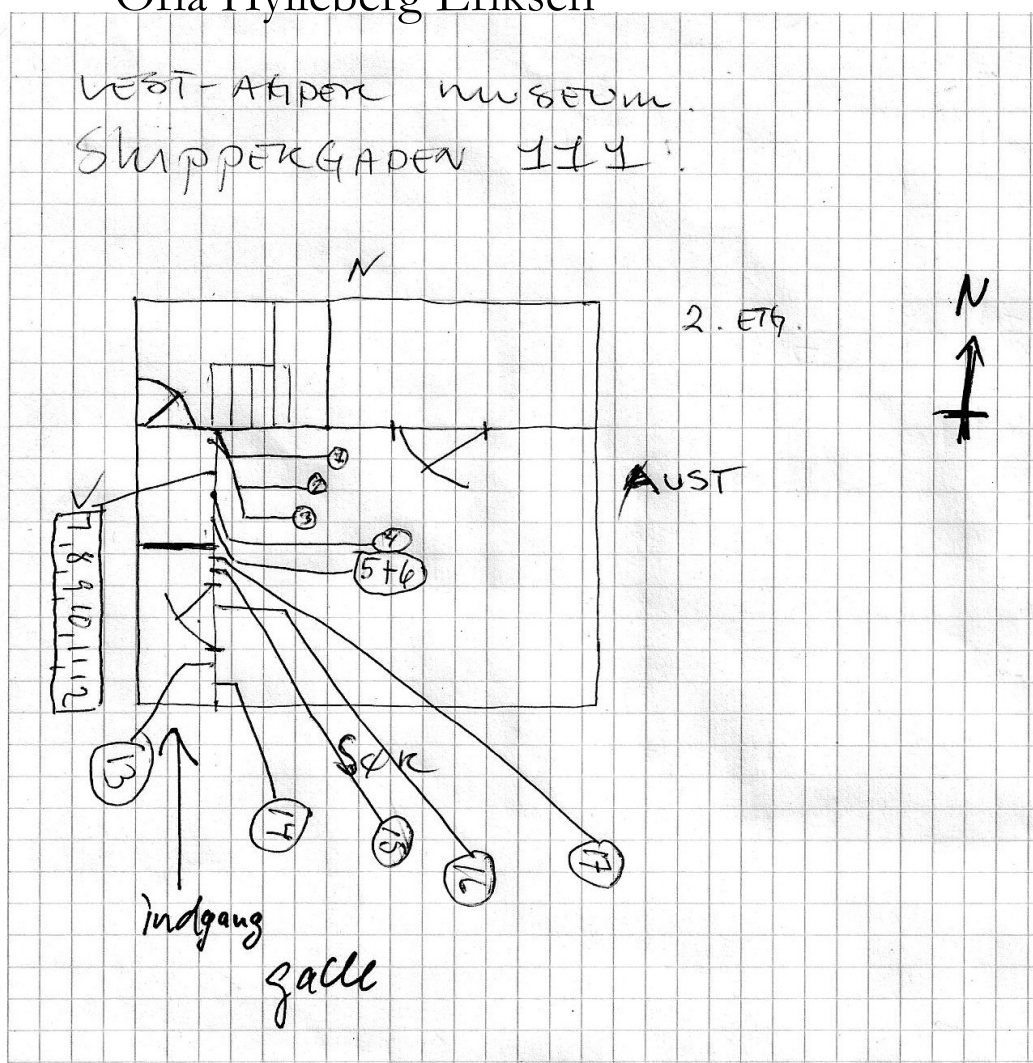 Orla Hylleberg Eriksen
VEST-AGDER MUSEUM.
SKIPPERGADEN 111:
N
2. ETG.
N
AUST
1
2
3
4
5+6
7, 8, 9, 10, 11, 12
13
14
15
16
17
indgang